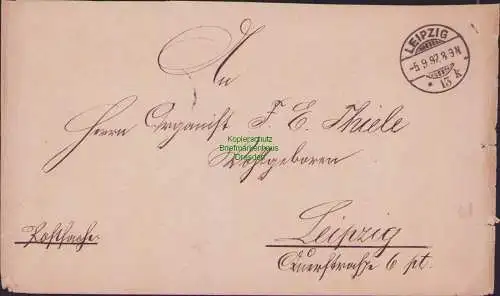 LEIPZIG
-5.9.97.8-9N
* 13 k *
An
Herrn Organist F. E. Thiele
Wohlgeboren
Kopierschutz
Briefmarkenhaus
Dresden
Leipzig
Querstraße 6 pt.
Postsache.